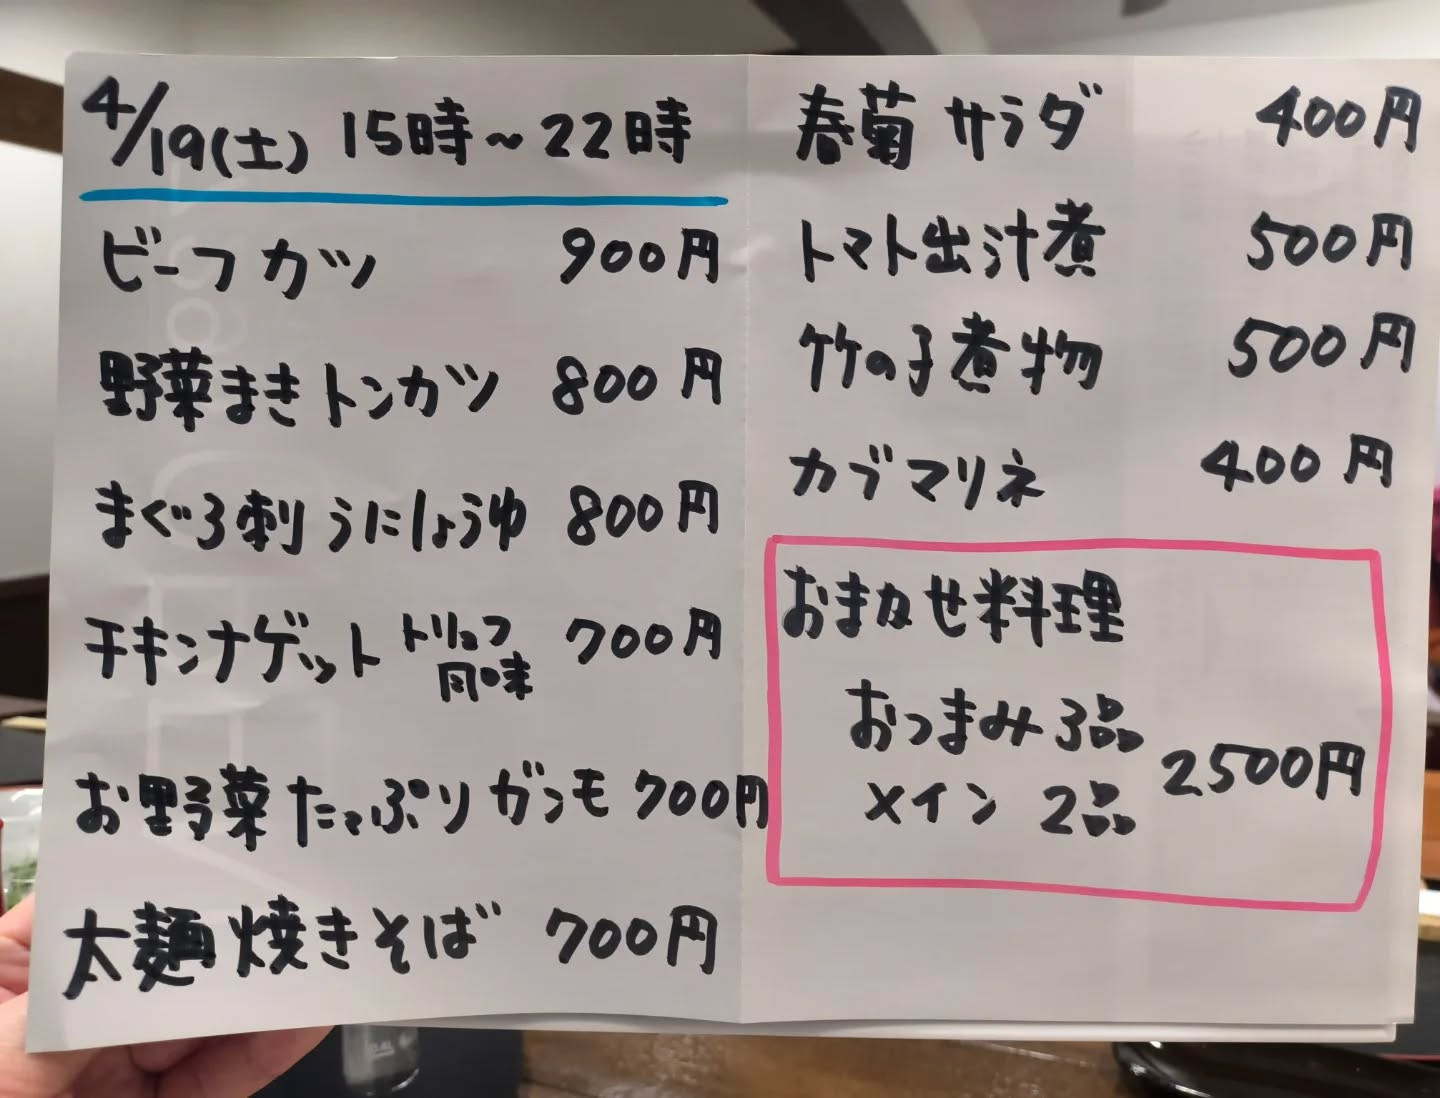 4/19(土) 15時~22時
ビーフカツ 900円
野菜まきトンカツ 800円
まぐろ刺 うにしょうゆ 800円
チキンナゲット トリュフ風味 700円
お野菜たっぷりガンモ 700円
太麺焼きそば 700円
春菊サラダ 400円
トマト出汁煮 500円
竹の子煮物 500円
カブマリネ 400円
おまかせ料理
おつまみ3品
メイン 2品
2500円